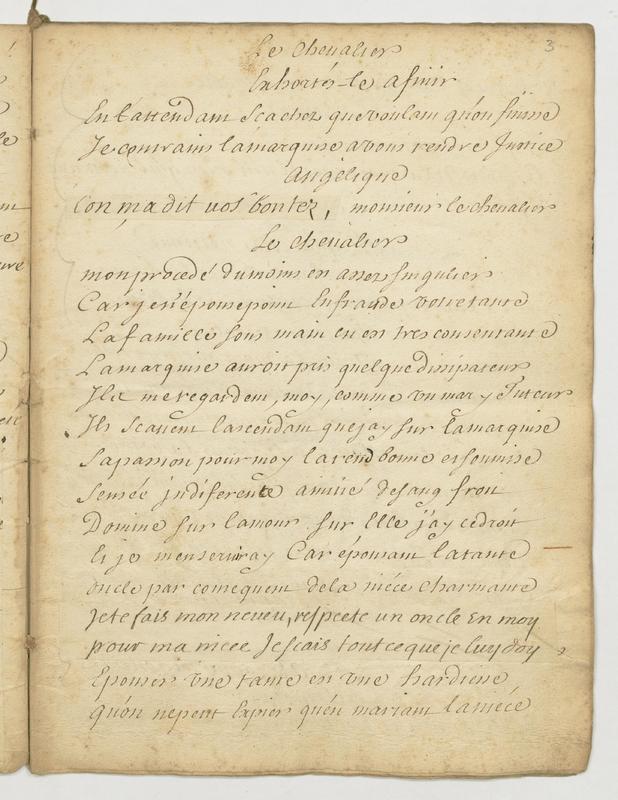 3
Le chevalier
Exhortés-le a finir
En lattendant Scachez que voulant qu'on finisse
Je contrains lamarquise avous rendre Justice
Angélique
L'on m'a dit vos bontez, monsieur le chevalier
Le chevalier
mon procedé dumoins en assez singulier
Car je n'épouse point En fraude votre tante
La famille sous main en est tres consentante
La marquise auroit pris quelque dissipateur
Ils me regardent, moy, comme un mary Tuteur
Ils scavent lascendant que jay sur la marquise
Sapassion pour moy la rend bonne et soumise
Sensée jndiferente amitié desang froit
Domine sur lamour sur Elle j'ay cedroit
Et je menserviray Car épousant latante
oncle par consequent dela niéce charmante
Je te fais mon neveu, respecte un oncle En moy
pour ma niece Je scais tout ce que je luy doy
Epouser une tante en une hardiesse
qu'on nepeut Expier qu'en mariant laniéce